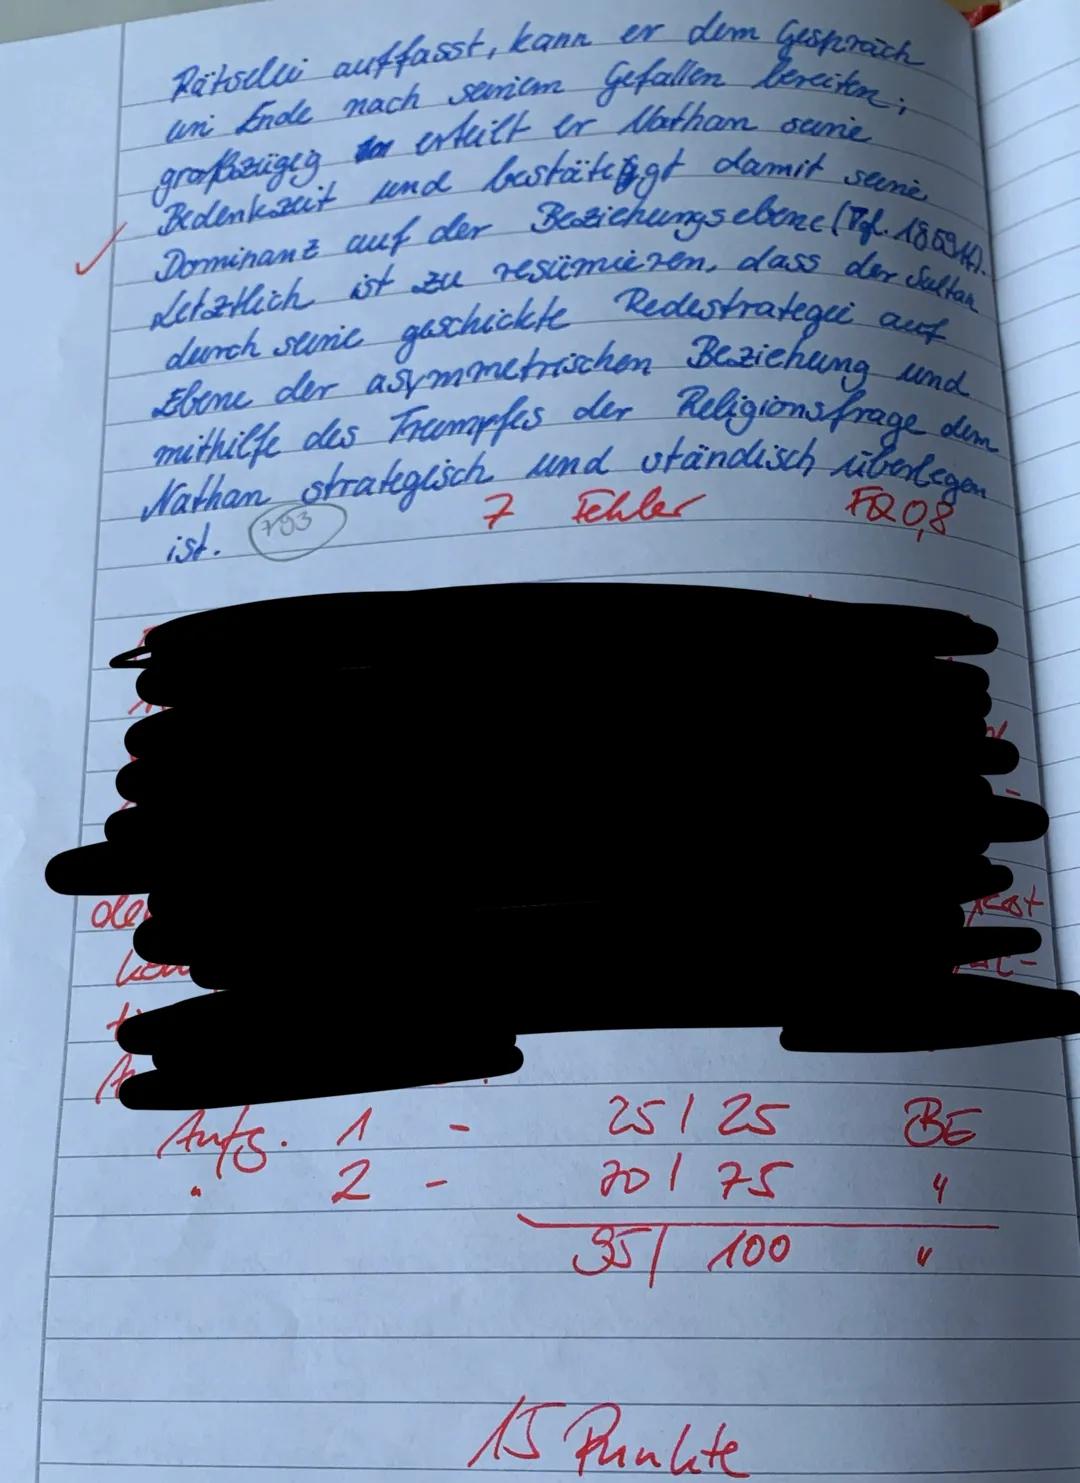 Rätselei auffasst, kann er dem Gespräch
ein Ende nach seinem Gefallen bereiten;
großzügig erteilt er Nathan seine
Bedenkzeit und bestätigt damit seine
Dominanz auf der Beziehungsebene (Vgl. 1859ff).
Letztlich ist zu resümieren, dass der Sultan
durch seine geschickte Redestrategie auf
Ebene der asymmetrischen Beziehung und
mithilfe des Trumpfes der Religionsfrage dem
Nathan strategisch und ständisch überlegen
ist. 793 7 Fehler FQ 0,8
Aufg. 1 - 25 / 25 BE
" 2 - 70 / 75 "
95 / 100 "
15 Punkte